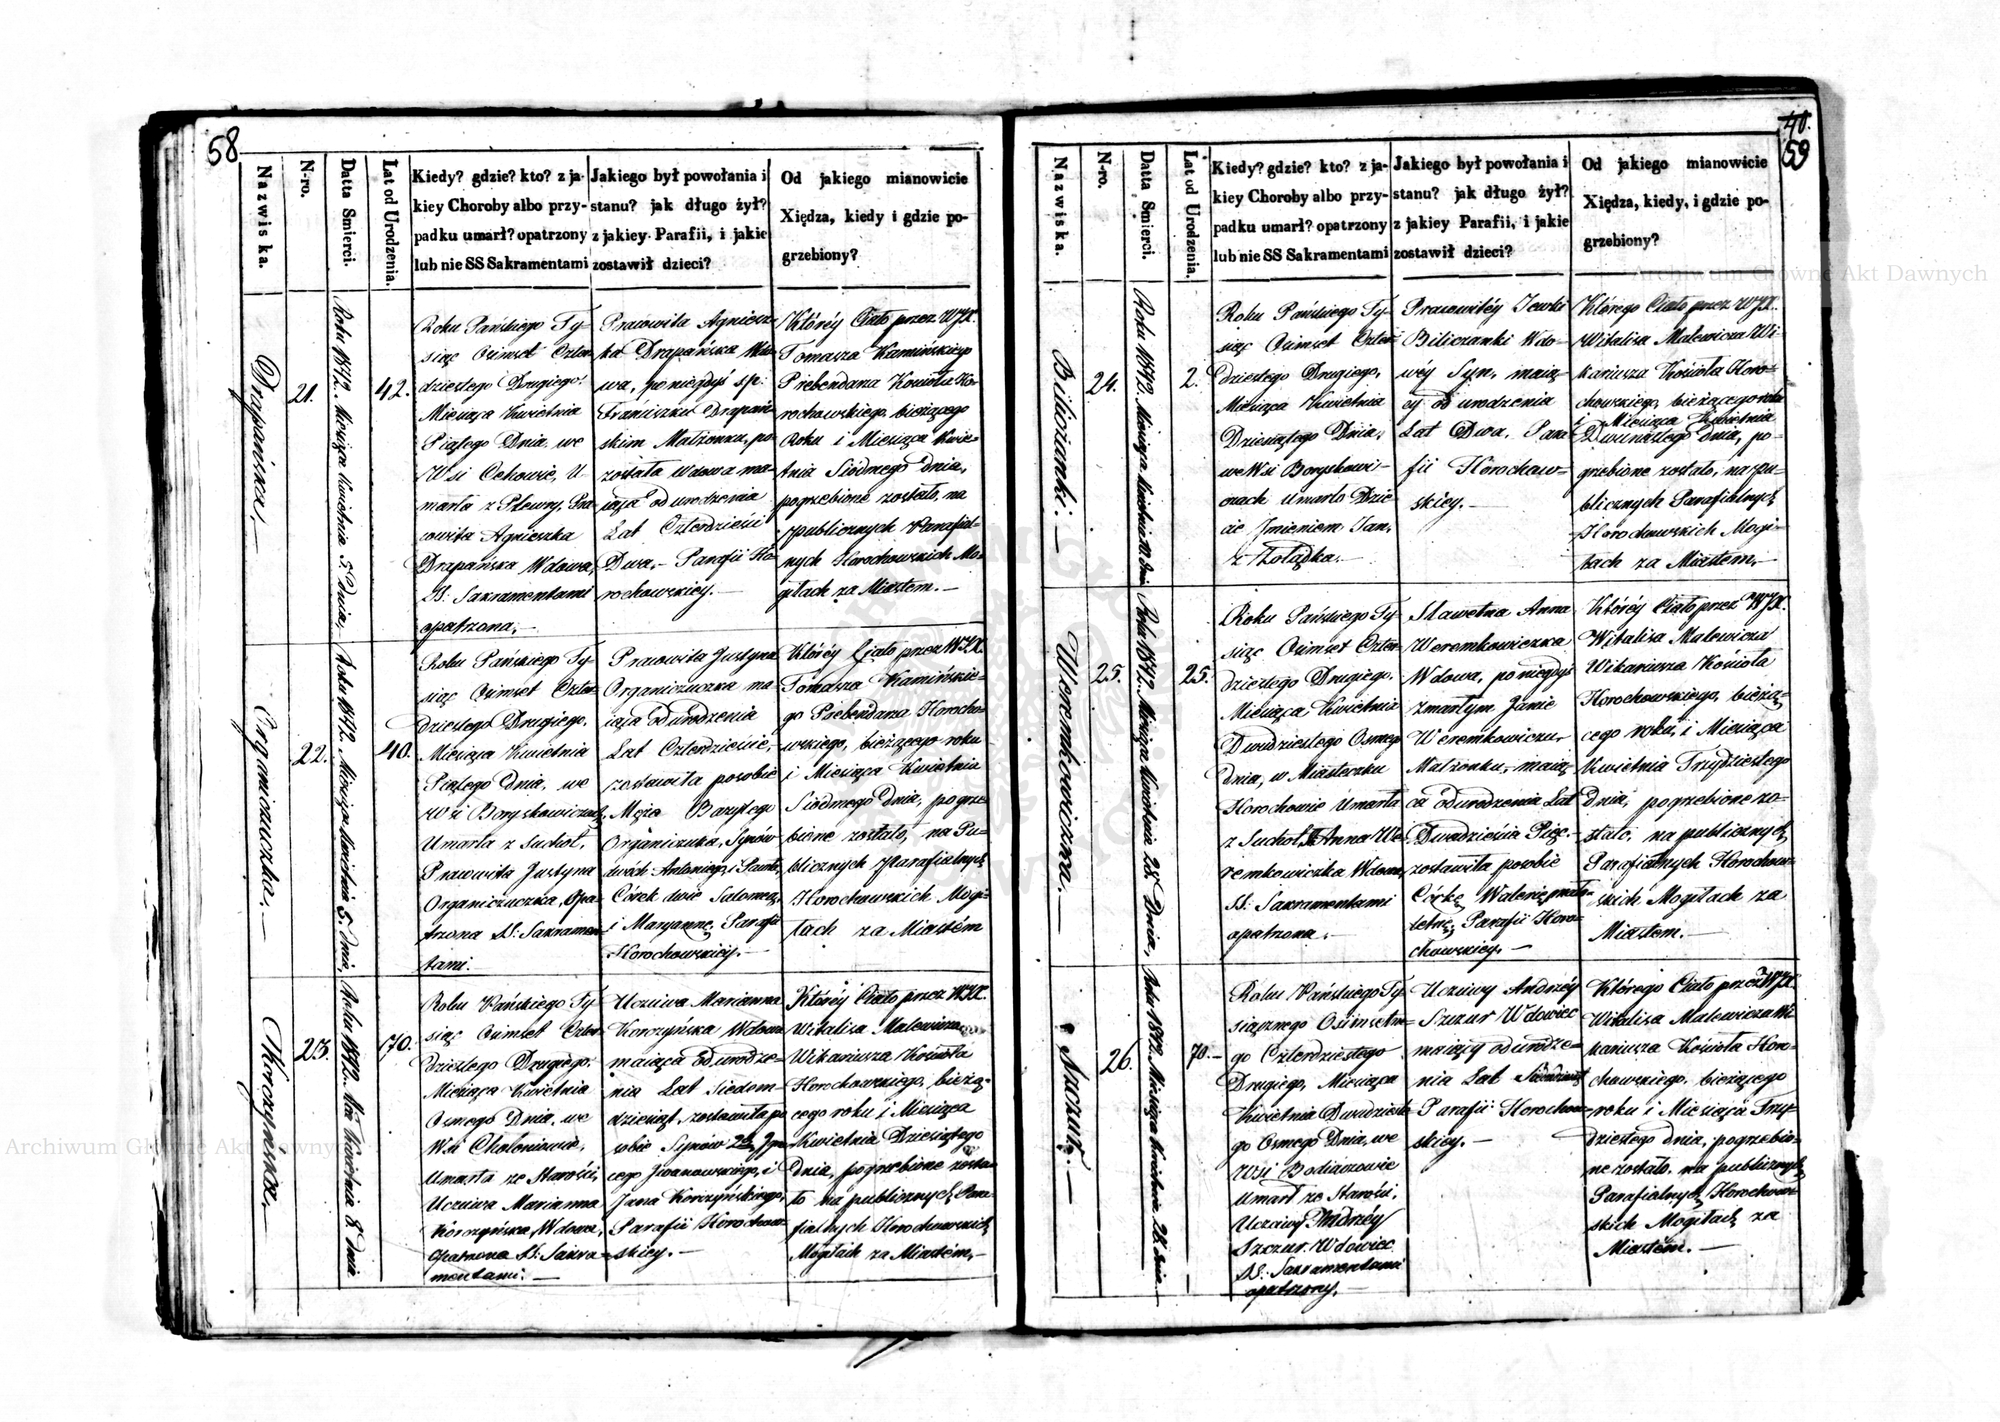 58
Nazwiska.
N-ro.
Datta Smierci.
Lat od Urodzenia.
Kiedy? gdzie? kto? z ja-
kiey Choroby albo przy-
padku umarł? opatrzony
lub nie SS Sakramentami
Jakiego był powołania i
stanu? jak długo żył?
z jakiey Parafii, i jakie
zostawił dzieci?
Od jakiego mianowicie
Xiędza, kiedy i gdzie po-
grzebiony?
Drapańska,—
21.
Roku 1842. Miesiąca Kwietnia 5. Dnia,
42.
Roku Pańskiego Ty-
siąc Osimset Czter-
dziestego Drugiego,
Miesiąca Kwietnia
Piątego Dnia, we
Wsi Cehowie, U-
marła z Plewry, Pra-
cowita Agnieszka
Drapańska Wdowa,
SS: Sakramentami
opatrzona.—
Pracowita Agniesz-
ka Drapańska Wdo-
wa, po niegdyś sp:
Franciszku Drapań-
skim Małżonku, po-
została Wdowa ma-
iąca od urodzenia
Lat Czterdzieści
Dwa.— Parafii Ho-
rochowskiey.—
Któréy Ciało przez WJX.
Tomasza Kamińskiego
Prebendarza Kościoła Ho-
rochowskiego, bieżącego
Roku i Miesiąca Kwie-
tnia Siódmego dnia,
pogrzebione zostało, na
publicznych Parafial-
nych Horochowskich Mo-
giłach za Miastem.—
Organiczuczka,—
22.
Roku 1842. Miesiąca Kwietnia 5. dnia,
40.
Roku Pańskiego Ty-
siąc Osimset Czter-
dziestego Drugiego,
Miesiąca Kwietnia
Piątego Dnia, we
Wsi Boryskowiczach
Umarła z Suchot,
Pracowita Justyna
Organiczuczka, Opa-
trzona SS: Sakramen-
tami.
Pracowita Justyna
Organiczuczka ma-
iąca od urodzenia
Lat Czterdzieście,
zostawiła posobie
Męża Bazylego
Organiczuka, Synów
dwóch Antoniego, i Sawkę,
Córek dwie Salomeę,
i Maryannę, Parafii
Horochowskiey.—
Któréy Ciało przez WJX.
Tomasza Kamińskie-
go Prebendarza Horocho-
wskiego, bieżącego roku
i Miesiąca Kwietnia
Siódmego dnia, pogrze-
bione zostało, na Pu-
blicznych Parafialnych
Horochowskich Mogi-
łach za Miastém
Korczyńska,—
23.
Roku 1842. Mca Kwietnia 8. dnia
70.
Roku Pańskiego Ty-
siąc Osimset Czter-
dziestego Drugiego,
Miesiąca Kwietnia
Osmego Dnia, we
Wsi Chołoniowie,
Umarła ze Starości,
Uczciwa Marianna
Korczyńska, Wdowa,
opatrzona SS: Sakra-
mentami.—
Uczciwa Marianna
Korczyńska Wdowa
maiąca od urodze-
nia Lat Siedm-
dziesiąt, zostawiła po
sobie Synów 2ch Igna-
cego Iwanowskiego, i
Jana Korczyńskiego,
Parafii Horochow-
skiey.—
Któréy Ciało przez WJX.
Witalisa Malewicza
Wikariusza Kościoła
Horochowskiego, bieżą-
cego roku i Miesiąca
Kwietnia Dziesiątego
Dnia, pogrzebione zosta-
ło na publicznych Para-
fialnych Horochowskich
Mogiłach za Miastém,—
40.
59
Nazwiska.
N-ro.
Datta Smierci.
Lat od Urodzenia.
Kiedy? gdzie? kto? z ja-
kiey Choroby albo przy-
padku umarł? opatrzony
lub nie SS Sakramentami
Jakiego był powołania i
stanu? jak długo żył?
z jakiey Parafii, i jakie
zostawił dzieci?
Od jakiego mianowicie
Xiędza, kiedy, i gdzie po-
grzebiony?
Biliczanki.—
24.
Roku 1842. Miesiąca Kwietnia Dnia
2.
Roku Pańskiego Ty-
siąc Osimset Czter-
dziestego Drugiego,
Miesiąca Kwietnia
Dziesiątego Dnia,
we Wsi Boryskowi-
czach Umarło Dzie-
cie Imieniem Jan,
z Żołądka.—
Pracowitéy Jewki
Biliczanki Wdo-
wéy Syn, maią-
cy od urodzenia
Lat Dwa, Para-
fii Horochow-
skiey.—
Którego Ciało przez WJX.
Witalisa Malewicza Wi-
kariusza Kościoła Horo-
chowskiego, bieżącego roku
i Miesiąca Kwietnia
Dwunastego dnia, po-
grzebione zostało, na pu-
blicznych Parafialnych
Horochowskich Mogi-
łach za Miastem,—
Weremkowiczka.—
25.
Roku 1842. Miesiąca Kwietnia 28. Dnia,
25.
Roku Pańskiego Ty-
siąc Osimset Czter-
dziestego Drugiego,
Miesiąca Kwietnia
Dwudziestego Osmego
Dnia, w Miasteczku
Horochowie Umarła
z Suchot, Anna We-
remkowiczka Wdowa,
SS: Sakramentami
opatrzona.—
Sławetna Anna
Weremkowiczka
Wdowa, po niegdyś
zmarłym Janie
Weremkowiczu,
Małżonku, maią-
ca od urodzenia Lat
Dwadzieścia Pięć.—
zostawiła posobie
Córkę Walerię mało-
letnę, Parafii Horo-
chowskiey.—
Któréy Ciało przez WJX.
Witalisa Malewicza
Wikariusza Kościoła
Horochowskiego, bieżą-
cego roku, i Miesiąca
Kwietnia Trzydziestego
dnia, pogrzebione zo-
stało, na publicznych
Parafialnych Horochow-
skich Mogiłach za
Miastem.—
Szczur.—
26.
Roku 1842. Miesiąca Kwietnia 28. dnia.
70.—
Roku Pańskiego Ty-
siącznego Osimsetne-
go Czterdziestego
Drugiego, Miesiąca
Kwietnia Dwudzieste-
go Osmego Dnia, we
Wsi Bodiaczowie
umarł ze Starości,
Uczciwy Andrzéy
Szczur, Wdowiec
SS: Sakramentami
opatrzony.—
Uczciwy Andrzéy
Szczur Wdowiec
maiący od urodze-
nia Lat Siedmdziesiąt
Parafii Horochow-
skiey.—
Którego Ciało przez WJX.
Witalisa Malewicza Wi-
kariusza Kościoła Horo-
chowskiego, bieżącego
roku i Miesiąca Trzy-
dziestego dnia, pogrzebio-
ne zostało, na publicznych
Parafialnych Horochow-
skich Mogiłach za
Miastem.—
Archiwum Główne Akt Dawnych
Archiwum Główne Akt Dawnych